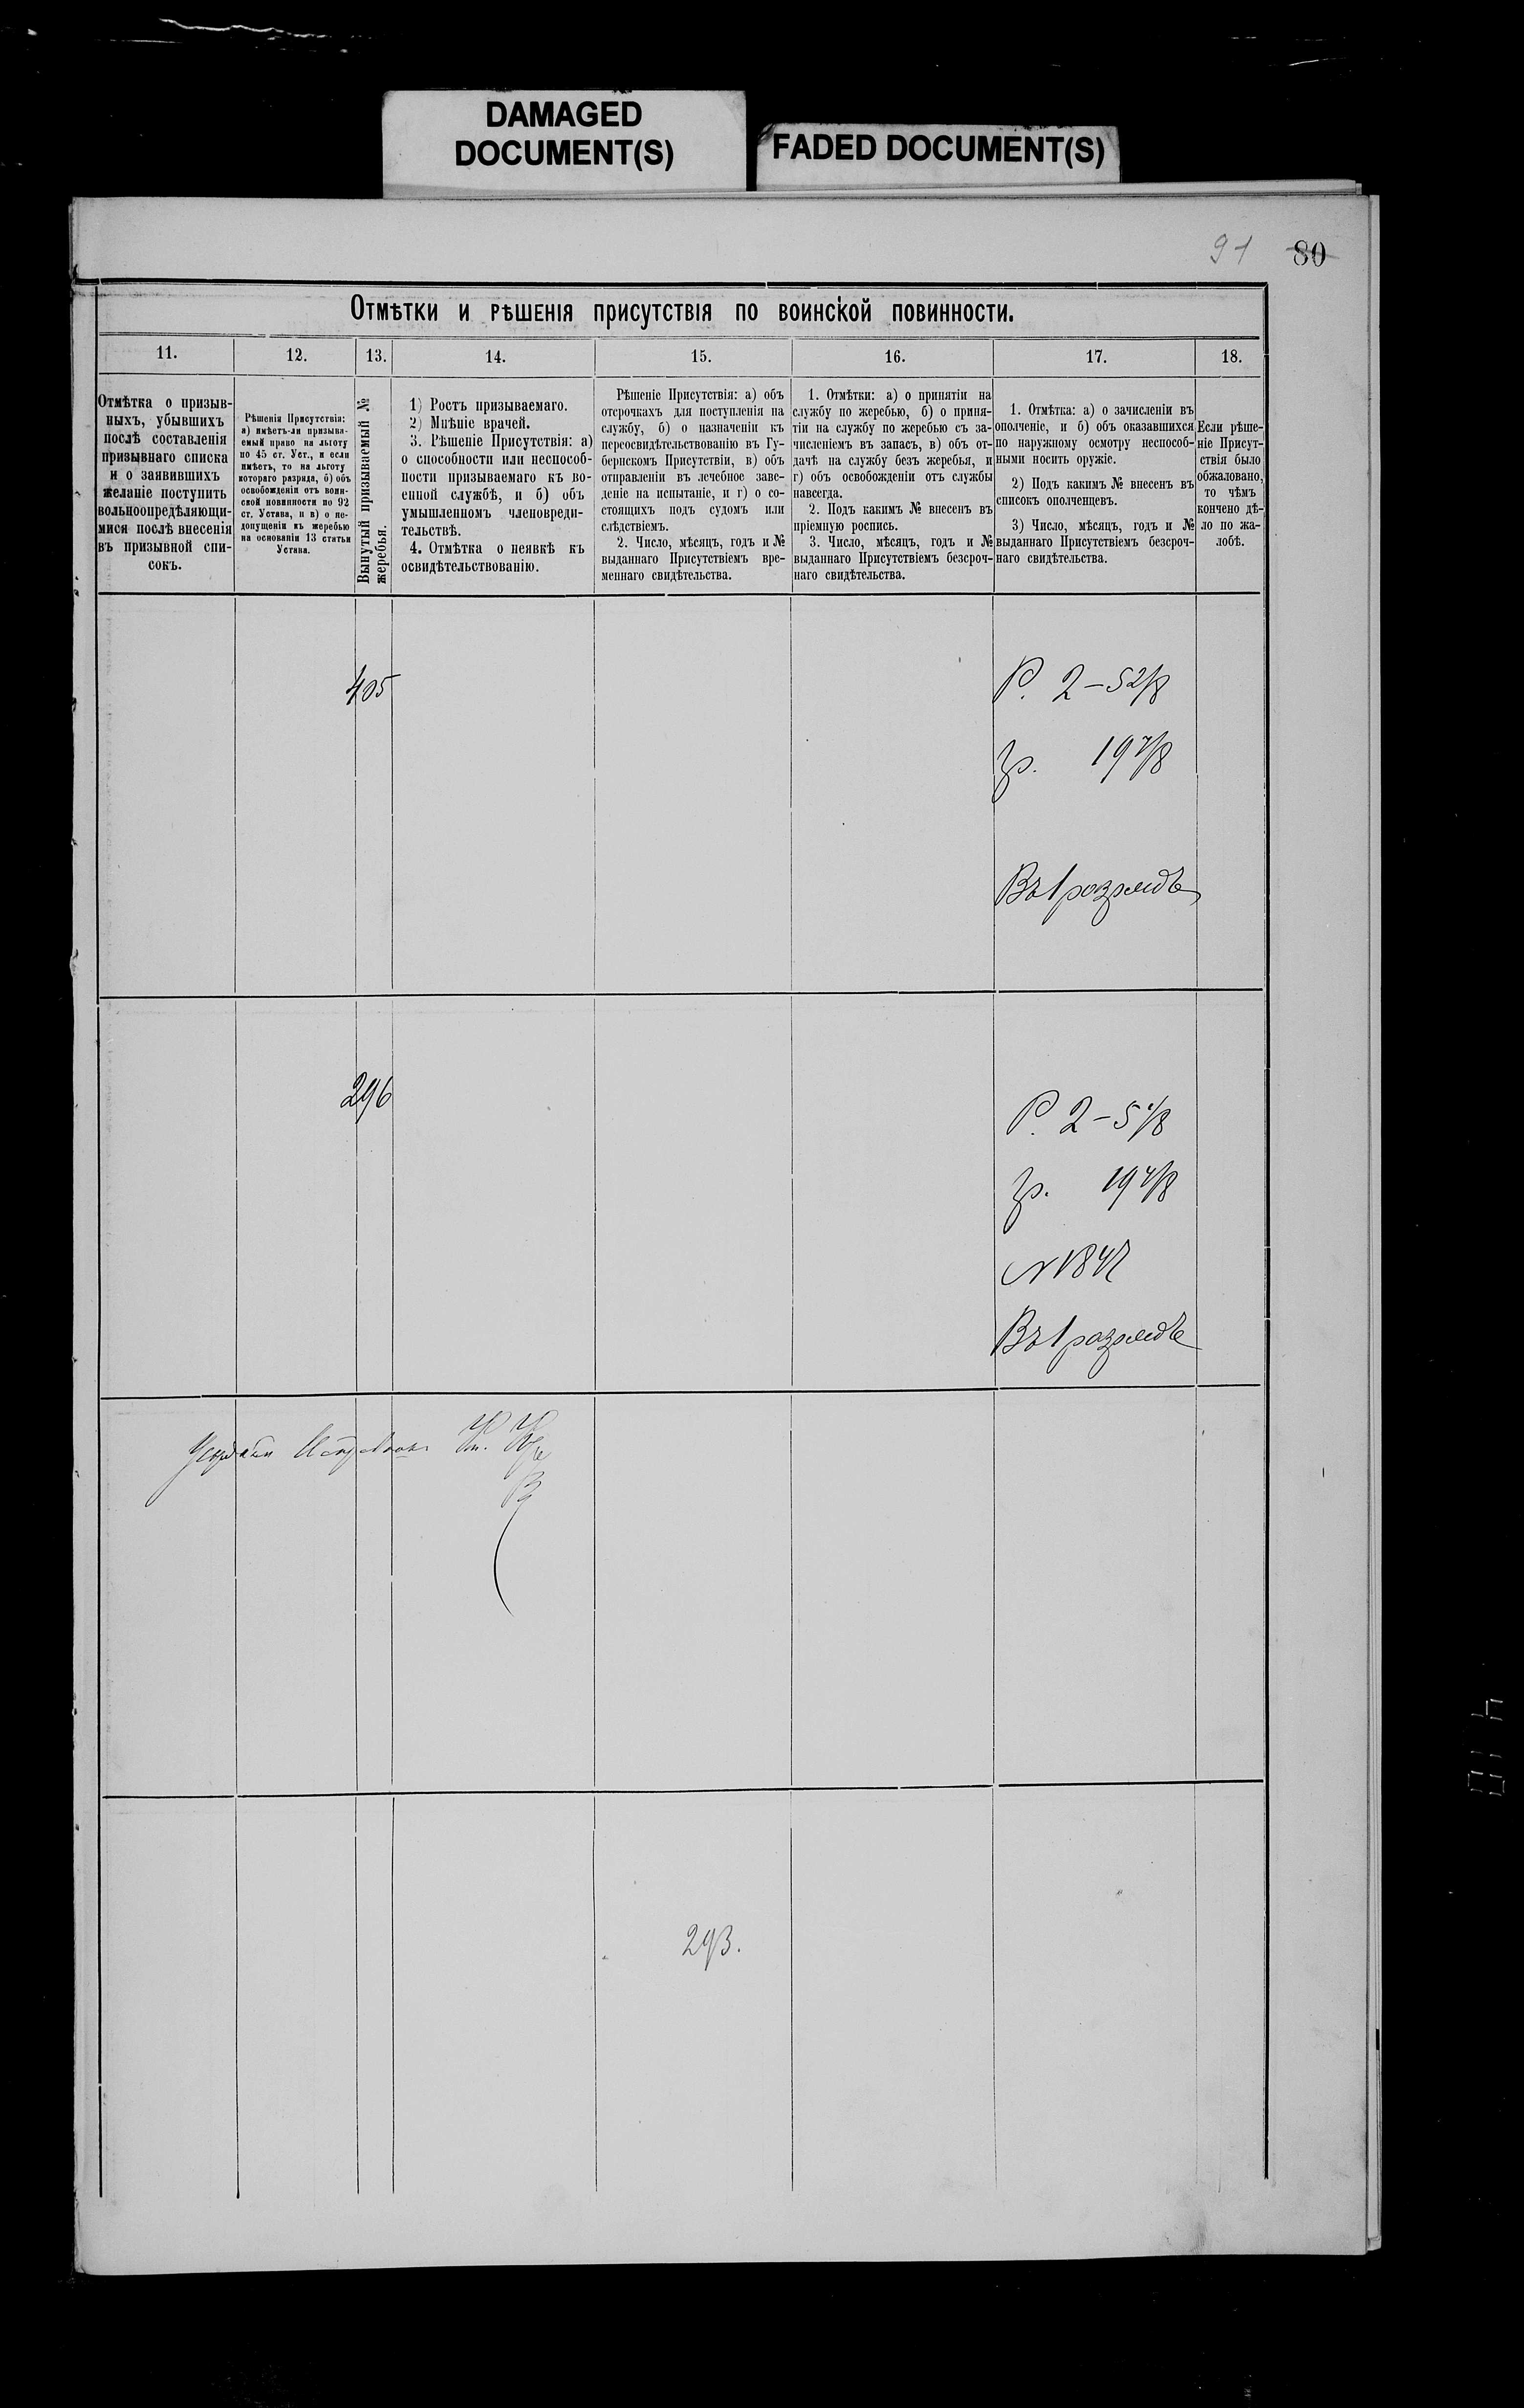 DAMAGED
DOCUMENT(S)
FADED DOCUMENT(S)
91 80
Отмѣтки и рѣшенія присутствія по воинской повинности.
11. 12. 13. 14. 15. 16. 17. 18.
Отмѣтка о призыв-
ныхъ, убывшихъ
послѣ составленія
призывнаго списка
и о заявившихъ
желаніе поступить
вольноопредѣляющи-
мися послѣ внесенія
въ призывной спи-
сокъ.
Рѣшенія Присутствія:
а) имѣетъ-ли призыва-
емый право на льготу
по 45 ст. Уст., и если
имѣетъ, то на льготу
котораго разряда, б) объ
освобожденіи отъ воин-
ской повинности по 92
ст. Устава, и в) о не-
допущеніи къ жеребью
на основаніи 13 статьи
Устава.
Вынутый призываемый №
жеребья.
1) Ростъ призываемаго.
2) Мнѣніе врачей.
3. Рѣшеніе Присутствія: а)
о способности или неспособ-
ности призываемаго къ во-
енной службѣ, и б) объ
умышленномъ членовреди-
тельствѣ.
4. Отмѣтка о неявкѣ къ
освидѣтельствованію.
Рѣшеніе Присутствія: а) объ
отсрочкахъ для поступленія на
службу, б) о назначеніи къ
переосвидѣтельствованію въ Гу-
бернскомъ Присутствіи, в) объ
отправленіи въ лечебное заве-
деніе на испытаніе, и г) о со-
стоящихъ подъ судомъ или
слѣдствіемъ.
2. Число, мѣсяцъ, годъ и №
выданнаго Присутствіемъ вре-
меннаго свидѣтельства.
1. Отмѣтки: а) о принятіи на
службу по жеребью, б) о приня-
тіи на службу по жеребью съ за-
численіемъ въ запасъ, в) объ от-
дачѣ на службу безъ жеребья, и
г) объ освобожденіи отъ службы
навсегда.
2. Подъ какимъ № внесенъ въ
пріемную роспись.
3. Число, мѣсяцъ, годъ и №
выданнаго Присутствіемъ безсроч-
наго свидѣтельства.
1. Отмѣтка: а) о зачисленіи въ
ополченіе, и б) объ оказавшихся
по наружному осмотру неспособ-
ными носить оружіе.
2) Подъ какимъ № внесенъ въ
списокъ ополченцевъ.
3) Число, мѣсяцъ, годъ и №
выданнаго Присутствіемъ безсроч-
наго свидѣтельства.
Если рѣше-
ніе Присут-
ствія было
обжаловано,
то чѣмъ
кончено дѣ-
ло по жа-
лобѣ.
405
Р. 2–5 2/8
гр. 19 7/8
Въ 1 разрядъ
296
Р. 2–5 1/8
гр. 19 4/8
№ 1847
Въ 1 разрядъ
293.